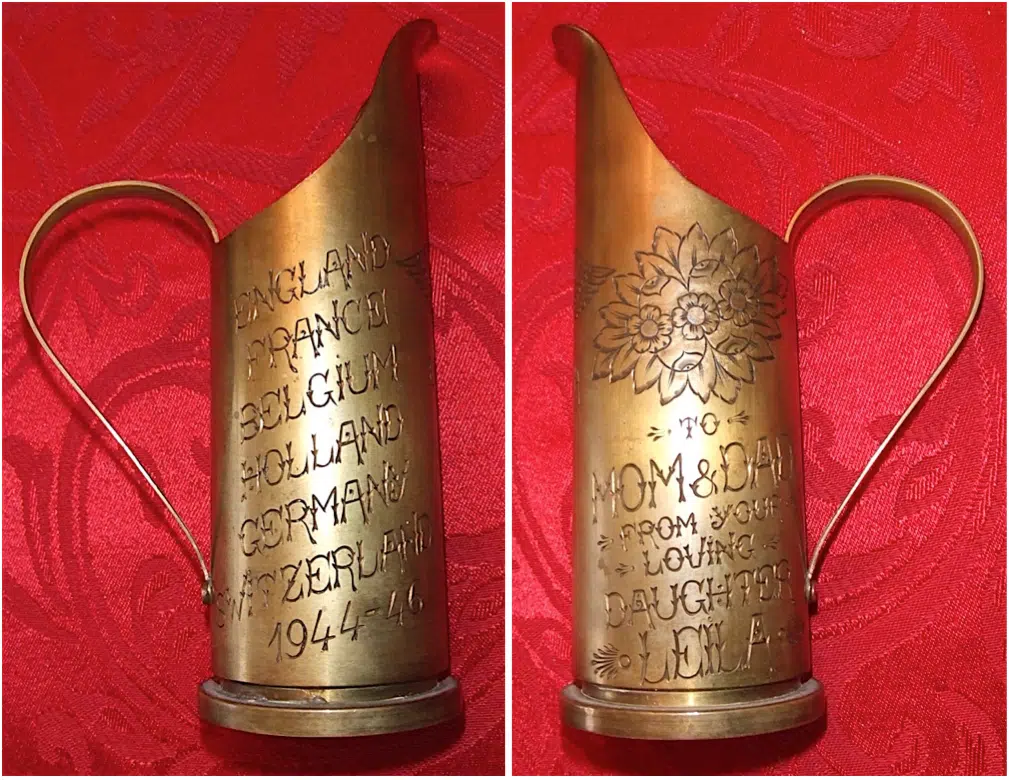 ENGLAND
FRANCE
BELGIUM
HOLLAND
GERMANY
SWITZERLAND
1944-46
TO
MOM & DAD
FROM YOUR
LOVING
DAUGHTER
LEILA